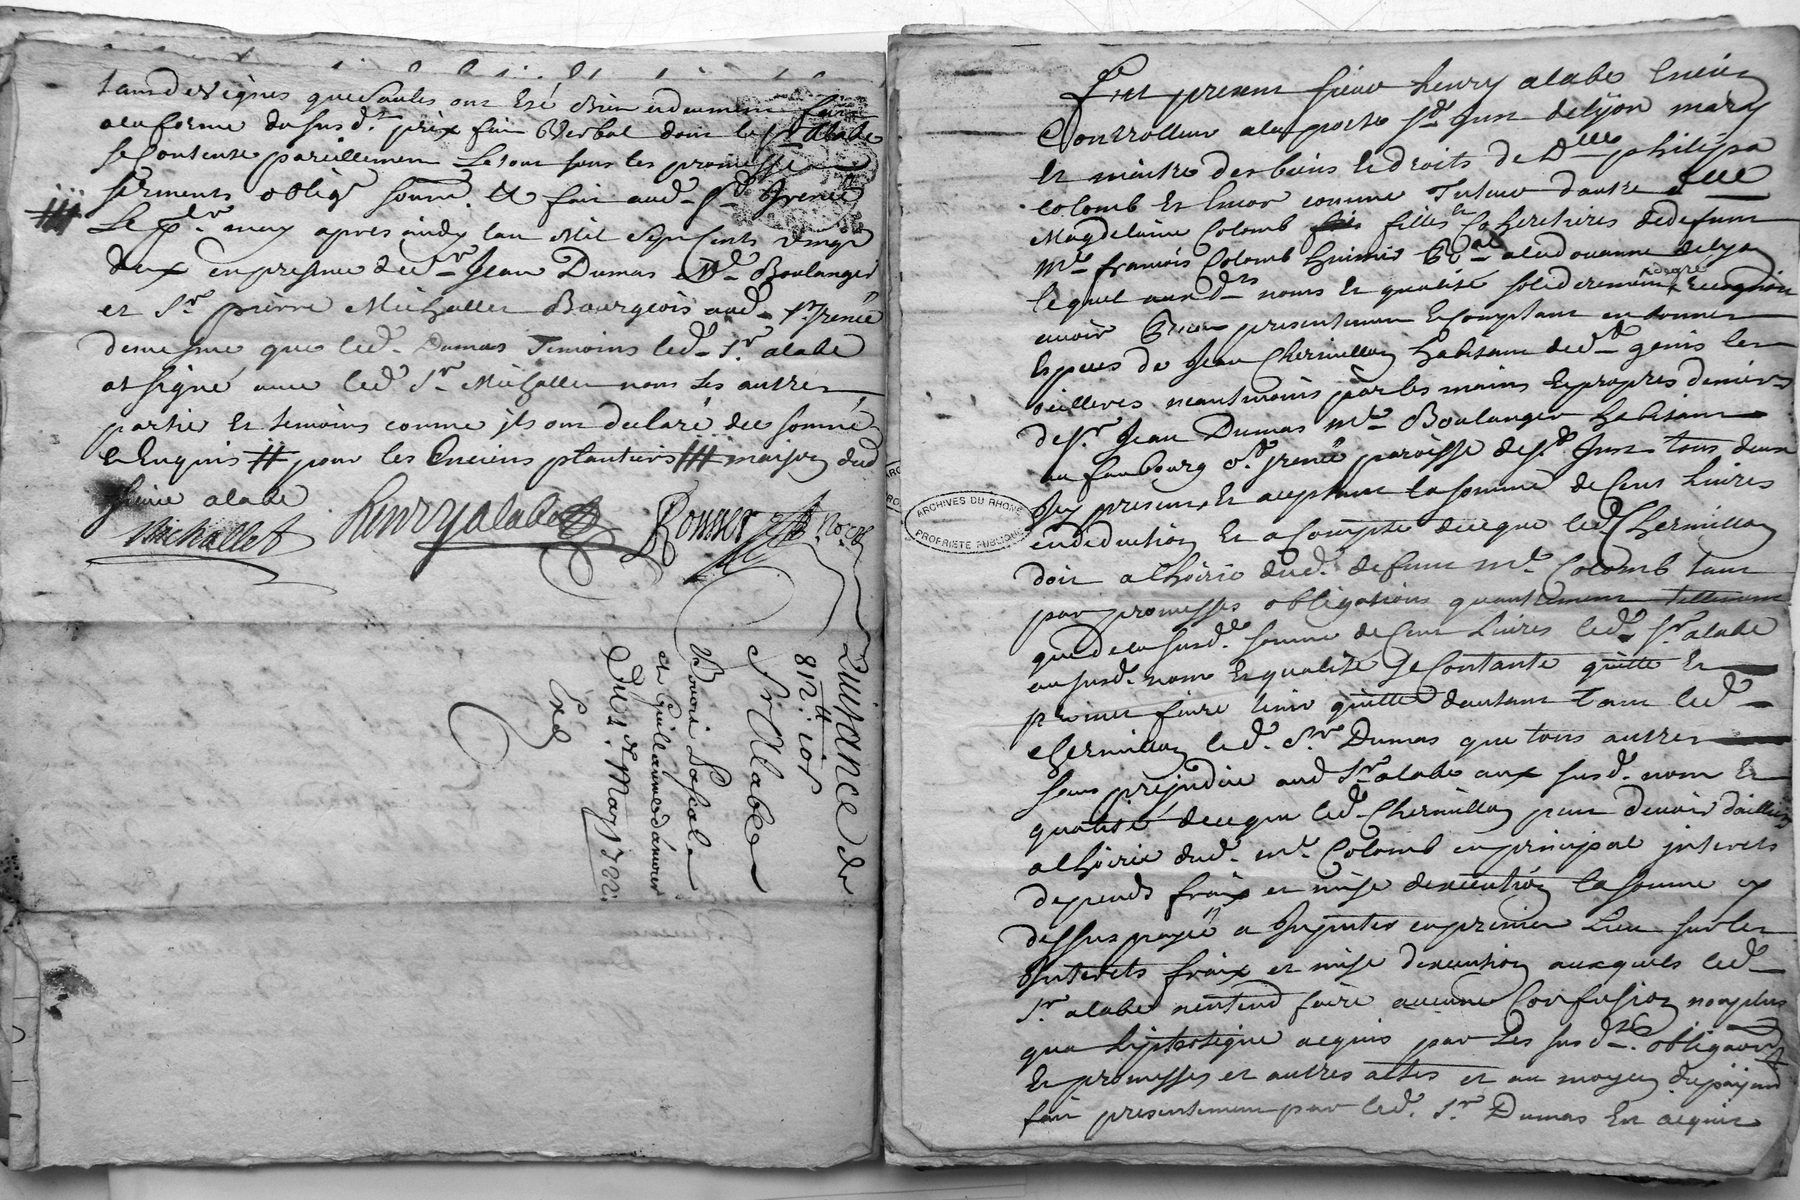 tant de vignes que saules ont été bien et deuement fait
a la forme du susd.t prix fait verbal dont led Sr alabe
se contente pareillement le tout sous les promesses
serments oblig.s soum. et fait aud. St Irenée
Le pr. may apres midy lan Mil Sept Cents vingt
deux en presence de sr Jean Dumas Me Boulanger
et Sr pierre Michallet Bourgeois aud. St Irenée
de mesme que led. Dumas Temoins led. Sr alabe
at signé avec led. Sr Michallet non les autres
partie et temoins comme ils ont declaré de ce sommé
et Enquis # pour les Enciens plantiers maison dud
alabe
Michallet henry alabe Bonnet Nore
Quittance de
812 tt 10 s
Sr Alabe
Benoit
et Guillaume
Du 1er May 1722
Exd
Fut present sieur henry alabe Encien
Controlleur a la porte St Just de Lyon mary
Et maitre des biens et droits de Dlle philipa
colomb Et Encor comme Tuteur dautre Dlle
Magdelaine Colomb filles et Coheretieres de defunt
Mre francois Colomb a la douanne de Lyon
lequel aux ds noms et qualité soliderement
avoir presentement et Comptant en bonnes
Especes de Jean Chermillon habitant de St genis les
ollieres neantmoins par les mains Et propres deniers
de Sr Jean Dumas Me Boulanger habitant
au faubourg St Irenée paroisse de St Just tous deux
Icy present Et aceptant la somme de Cent Livres
en deduction Et a Compte de ce que led. Chermillon
doit a lhoirie dud. defunt Mr. Colomb tant
par promesses obligations quautrement tellement
que de la susd. somme de Cent Livres led. Sr alabe
au susd. nom Et qualité se Contante quitte Et
promet faire tenir quitte dautant Tant led.
chermillon led. Sr Dumas que tous autres
sans prejudice aud Sr alabe aux susd. nom Et
qualité de ce que led. Chermillon peut devoir dailleurs
a lhoirie dud. Mr. Colomb en principal interets
depends fraix et mise dexecution la somme cy
dessus payée a Imputer en premier Lieu sur les
Interets fraix et mise dexecution auxquels led.
Sr alabe nentend faire aucune Confusion non plus
qua hipoteque acquis par les susd. obligations
Et promesses et autres actes et au moyen du payement
fait presentement par led. Sr Dumas Et acquis
ARCHIVES DU RHONE
PROPRIETE PUBLIQUE